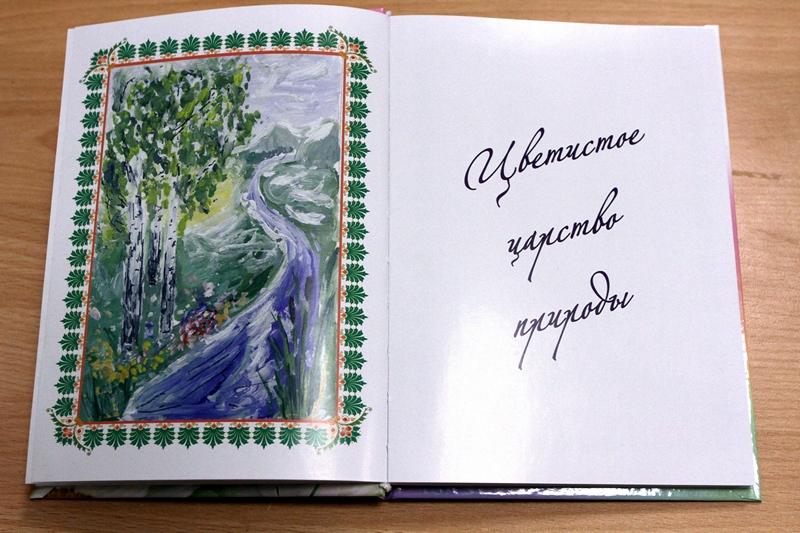 Цветистое
царство
природы